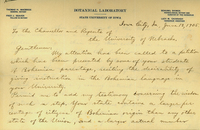 BOTANICAL LABORATORY
STATE UNIVERSITY OF IOWA
Iowa City, Ia. June 17, 1905
To the Chancellor and Regents of
the University of Nebraska,
Gentlemen:
My attention has been called to a petition
which has been presented by some of your students
of Bohemian parentage, reciting the desirability of
placing instruction in the Bohemian language in
your University.
Permit me to add a testimony concerning the wisdom
of such a step. Your state contains a larger per-
centage of citizens of Bohemian origin than any other
state of the Union, and a larger actual number